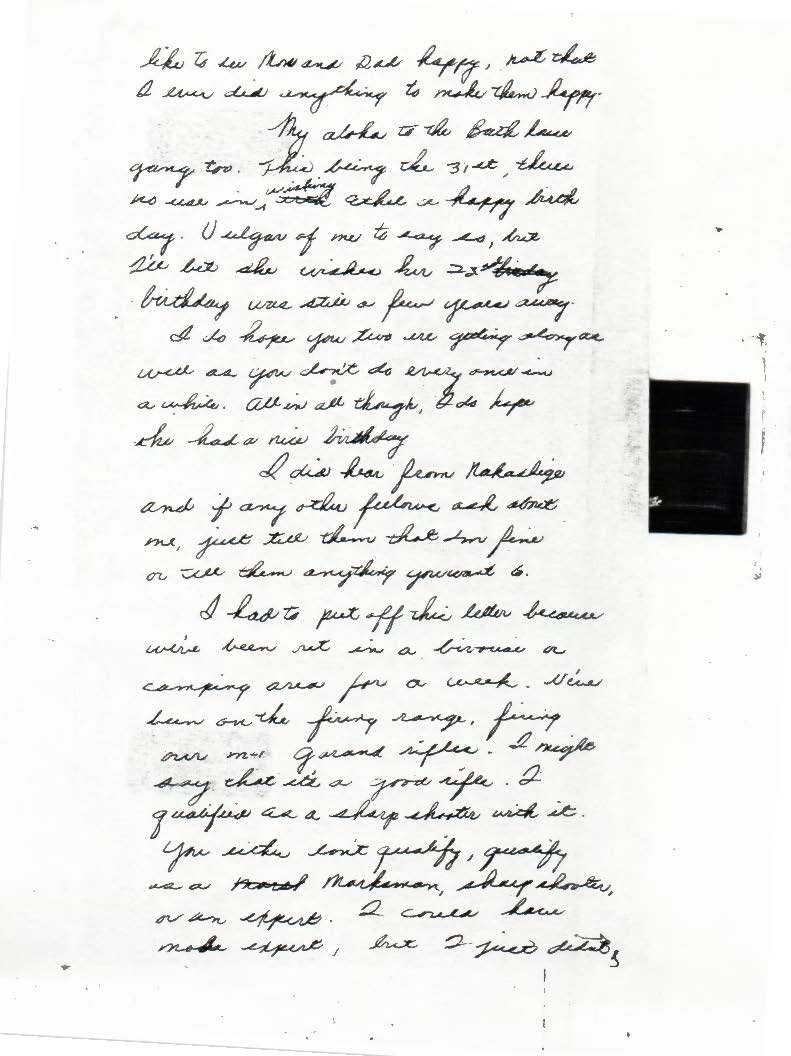 like to see Mom and Dad happy, not that
I ever did anything to make them happy.
My aloha to the Bath house
gang too. This being the 31st, theres
no use in wishing Ethel a happy birth
day. Vulgar of me to say so, but
I'll bet she wishes her 23rd
birthday was still a few years away.
I do hope you two are geting along as
well as you don't do every once in
a while. All in all though, I do hope
she had a nice birthday
I did hear from Nakashige
and if any other fellows ask about
me, just tell them that I'm fine
or tell them anything you want to.
I had to put off this letter because
we've been out in a bivouac or
camping area for a week. We've
been on the firing range, firing
our m-1 Garand rifles. I might
say that it's a good rifle. I
qualified as a sharp shooter with it.
You either don't qualify, qualify
as a Marksman, sharp shooter,
or an expert. I could have
made expert, but I just didn't